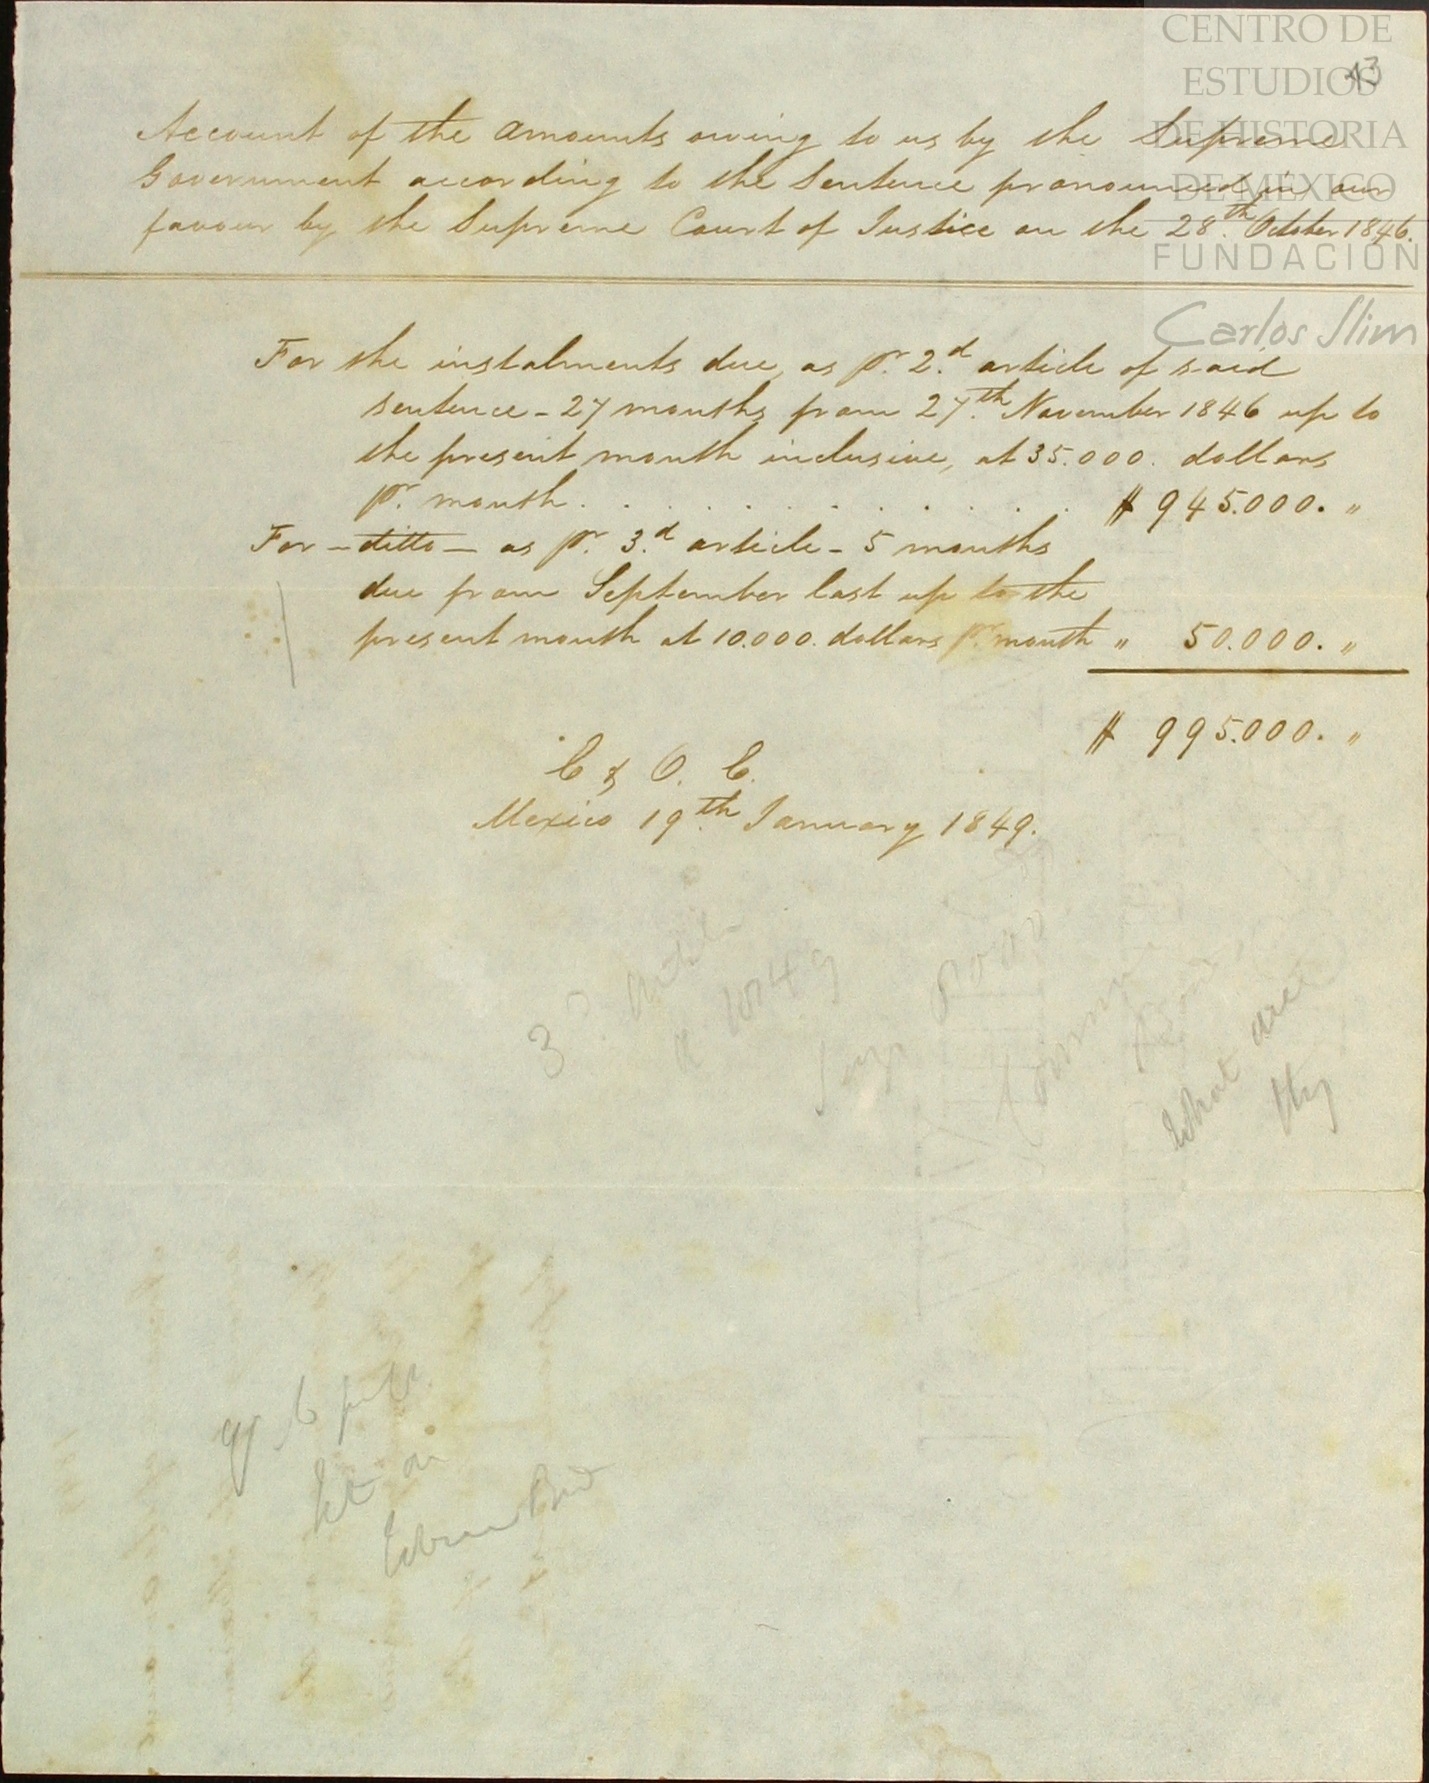 CENTRO DE
ESTUDIOS
DE HISTORIA
DE MÉXICO
FUNDACIÓN
Carlos Slim
Account of the amounts owing to us by the Supreme
Government according to the Sentence pronounced in our
favour by the Supreme Court of Justice on the 28th October 1846.
For the instalments due, as pr. 2d article of said
sentence - 27 months from 27th November 1846 up to
the present month inclusive, at 35.000. dollars
pr. month . . . . . . . . . . . $ 945.000. "
For - ditto - as pr. 3d article - 5 months
due from September last up to the
present month at 10.000. dollars pr. month " 50.000. "
$ 995.000. "
E & O. E.
Mexico 19th January 1849.
3d
What are
they